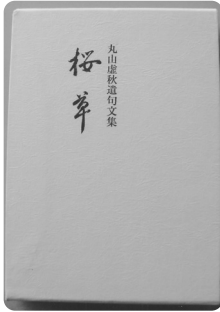 丸山虚秋遺句文集
桜草